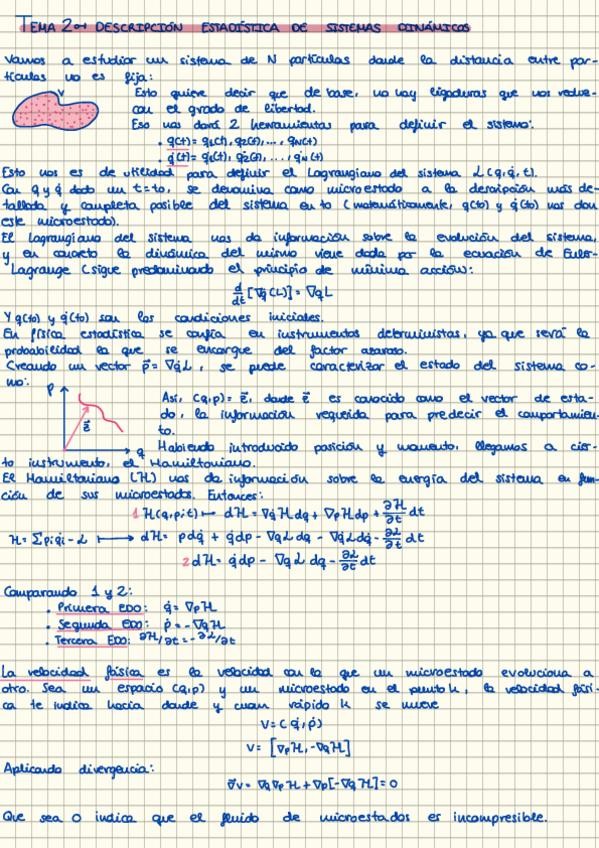 TEMA 2 → DESCRIPCIÓN ESTADÍSTICA DE SISTEMAS DINÁMICOS
Vamos a estudiar un sistema de N partículas donde la distancia entre par-
tículas no es fija:
V
Esto quiere decir que de base, no hay ligaduras que nos reduz-
can el grado de libertad.
Eso nos dará 2 herramientas para definir el sistema:
• q(t) = q1(t), q2(t), ..., qN(t)
• q̇(t) = q̇1(t), q̇2(t), ..., q̇N(t)
Esto nos es de utilidad para definir el Lagrangiano del sistema L(q, q̇, t).
Con q y q̇ dado un t=t0, se denomina como microestado a la descripción más de-
tallada y completa posible del sistema en t0 (matemáticamente, q(t0) y q̇(t0) nos dan
este microestado).
El Lagrangiano del sistema nos da información sobre la evolución del sistema,
y en concreto la dinámica del mismo viene dada por la ecuación de Euler-
Lagrange (sigue predominando el principio de mínima acción):
d/dt [∇q̇(L)] = ∇qL
Y q(t0) y q̇(t0) son las condiciones iniciales.
En física estadística se confía en instrumentos deterministas, ya que será la
probabilidad la que se encargue del factor azaroso.
Creando un vector p⃗ = ∇q̇L, se puede caracterizar el estado del sistema co-
mo:
P
Así, (q,p) = e⃗, donde e⃗ es conocido como el vector de esta-
do, la información requerida para predecir el comportamien-
to.
e⃗
q
Habiendo introducido posición y momento, llegamos a cier-
to instrumento, el Hamiltoniano.
El Hamiltoniano (H) nos da información sobre la energía del sistema en fun-
ción de sus microestados. Entonces:
1 H(q,p;t) ↦ dH = ∇qH dq + ∇pH dp + ∂H/∂t dt
H = Σpiq̇i - L ↦ dH = pdq̇ + q̇dp - ∇qL dq - ∇q̇L dq̇ - ∂L/∂t dt
2 dH = q̇dp - ∇qL dq - ∂L/∂t dt
Comparando 1 y 2:
• Primera EDO: q̇ = ∇pH
• Segunda EDO: ṗ = -∇qH
• Tercera EDO: ∂H/∂t = -∂L/∂t
La velocidad fásica es la velocidad con la que un microestado evoluciona a
otro. Sea un espacio (q,p) y un microestado en el punto k, la velocidad fási-
ca te indica hacia donde y cuan rápido k se mueve
V = (q̇, ṗ)
V = [∇pH, -∇qH]
Aplicando divergencia:
∇⃗v = ∇q∇pH + ∇p[-∇qH] = 0
Que sea 0 indica que el fluido de microestados es incompresible.